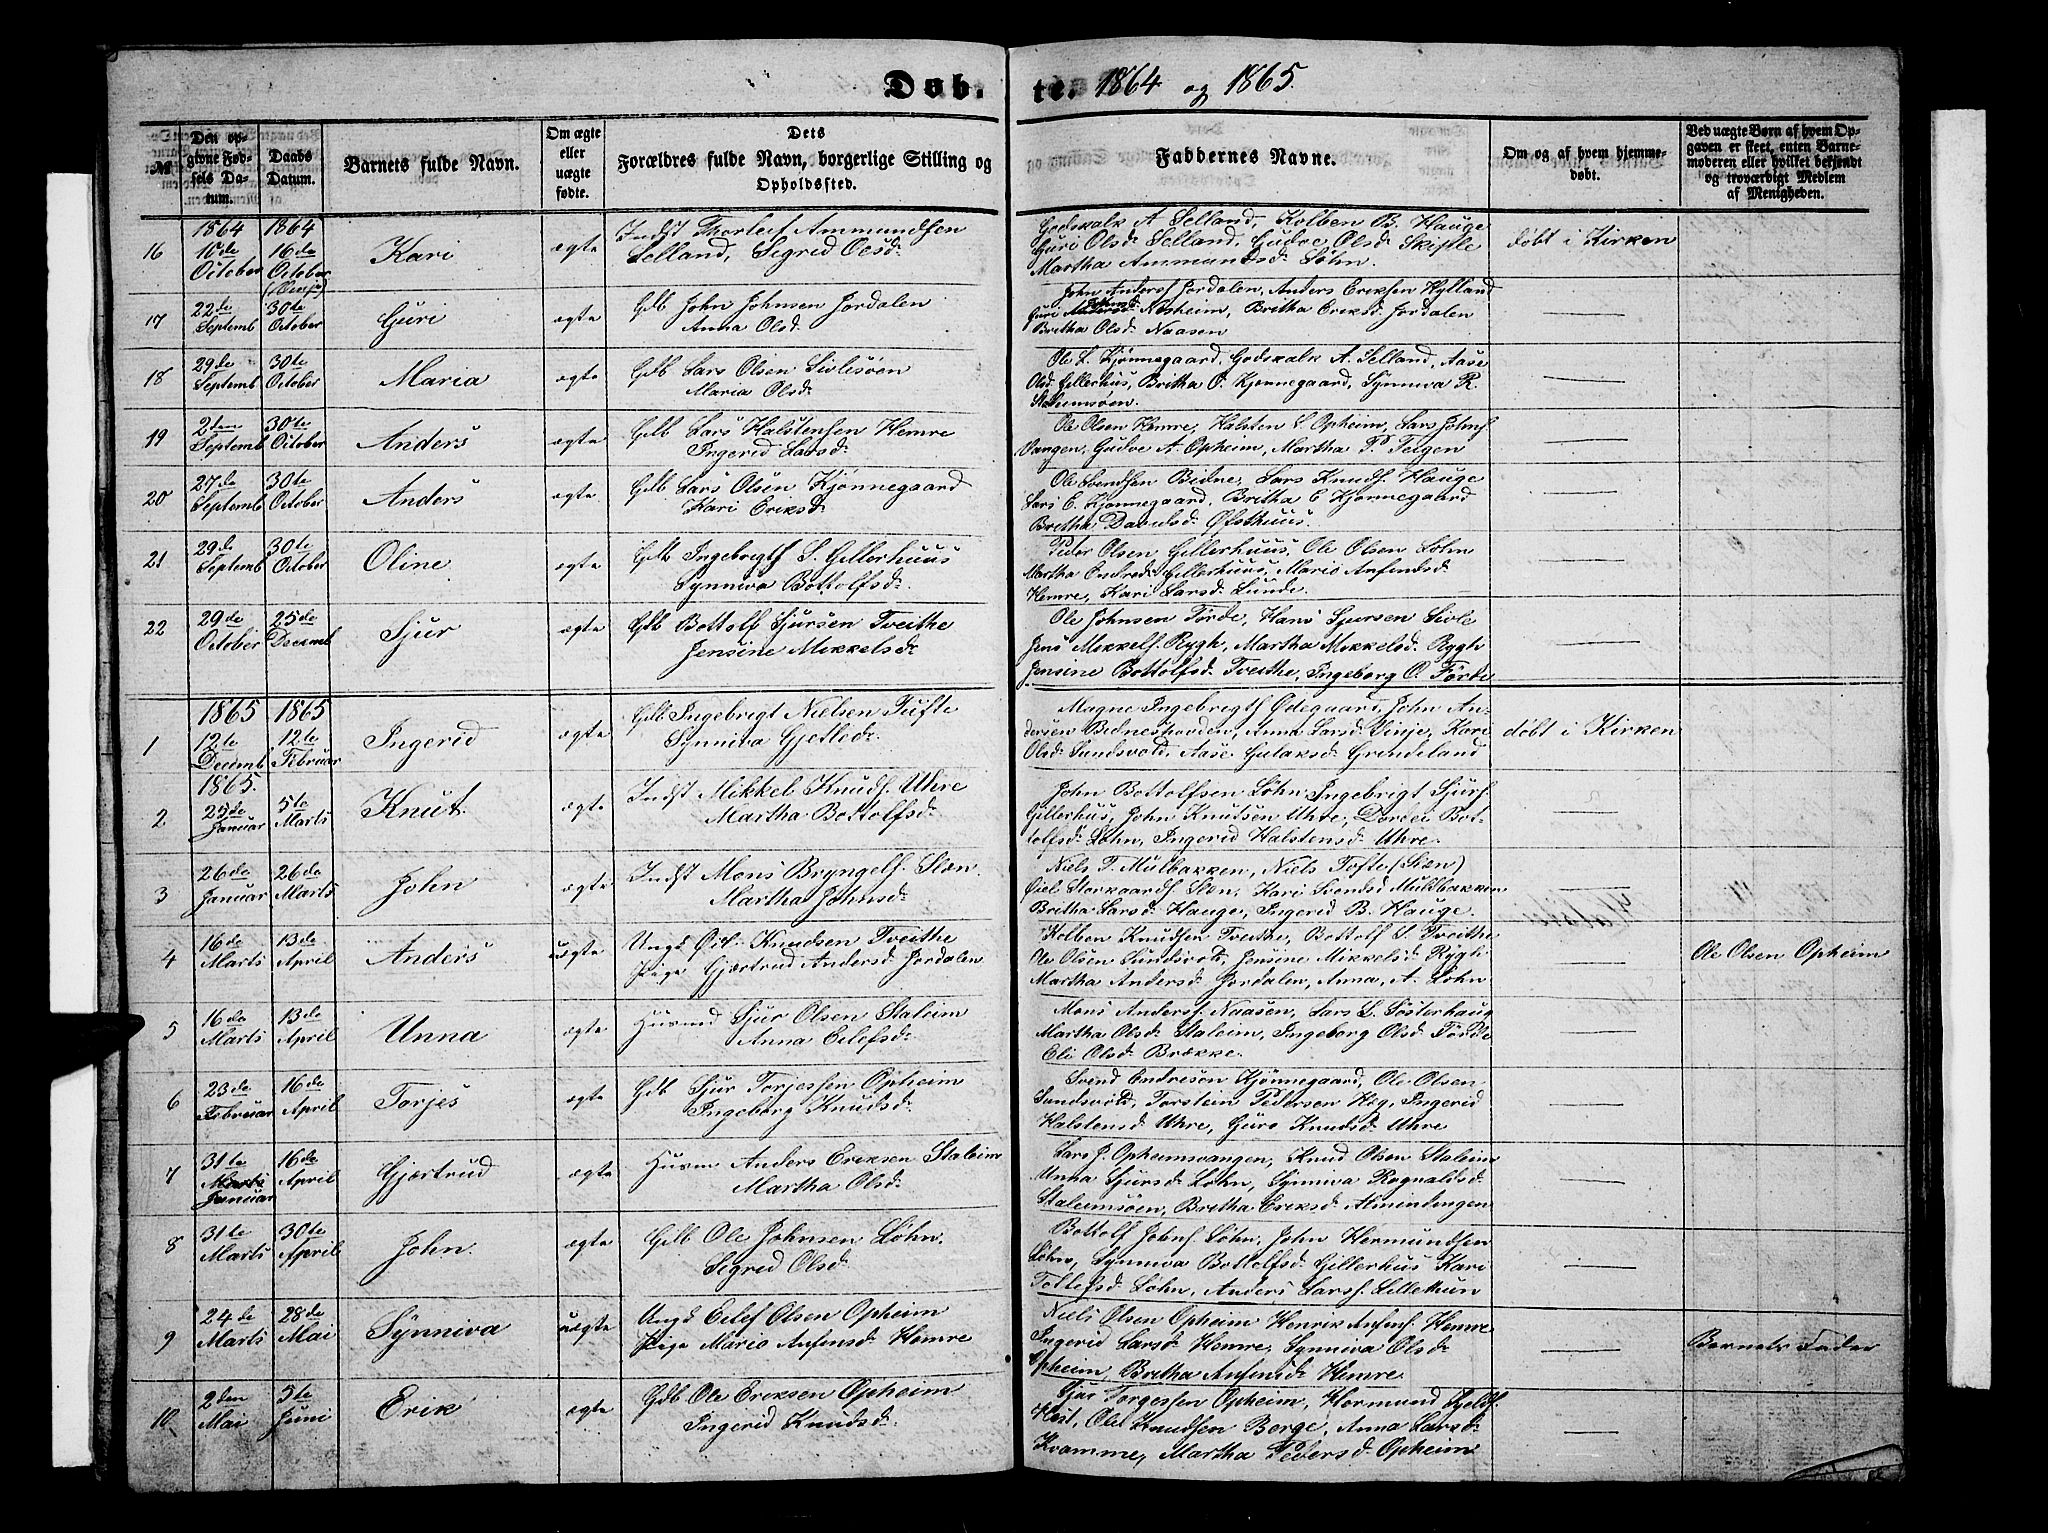 Døb- te. 1864 og 1865.
№
Den opgivne Fødsels Datum.
Daabs Datum.
Barnets fulde Navn.
Om ægte eller uægte fødte.
Dets
Forældres fulde Navn, borgerlige Stilling og
Opholdssted.
Faddernes Navne.
Om og af hvem hjemmedøbt.
Ved uægte Børn af hvem Opgaven er skeet, enten Barnemoderen eller hvilket bekjendt og troværdigt Medlem af Menigheden.
1864 1864
16 10de October 16de October Kari ægte Indst Thorleif Ammundsen
Selland, Sigrid Olsd:
Godskalk A Selland, Kolben B. Hauge
Guri Olsd: Selland, Gudve Olsd: Skiple
Martha Ammundsd: Løhn.
døbt i Kirken
17 22de Septemb 30te October Guri ægte Gdb John Johnsen Jordalen
Anna Olsd:
John Andersf Jordalen, Anders Eriksen Hylland
Guri Nesheim, Britha Eriksd: Jordalen
Britha Olsd: Naasen
18 29de Septemb 30te October Maria ægte Gdb Lars Olsen Sivlesøen
Maria Olsd:
Ole L. Kjønnegaard, Godskalk A. Selland, Aase
Olsd: Gillerhus, Britha O. Kjønnegaard, Synniva R.
Staleimsøen.
19 2den Septemb 30te October Anders ægte Gdb Lars Halstensen Hemre
Ingerid Larsd:
Ole Olsen Hemre, Halsten L Opheim, Lars Johnf.
Vangen, Gudve A. Opheim, Martha P. Felgen
20 27de Septemb 30te October Anders ægte Gdb Lars Olsen Kjønnegaard
Kari Eriksd:
Ole Svendsen Bidne, Lars Knudf. Hauge
Lars E. Kjønnegaard, Britha E Kjønnegaard
Britha Davidsd: Øfsthuus.
21 29de Septemb 30te October Oline ægte Gdb Ingebrigtf S. Gillerhuus
Synniva Bottolfsd:
Peder Olsen Gillerhuus, Ole Olsen Løhn
Martha Endred: Gillerhuus, Mario Anfindsd:
Hemre, Kari Larsd: Lunde.
22 29de October 25de Decemb Sjur ægte Gdb Bottolf Sjursen Tveithe
Jensine Mikkelsd:
Ole Johnsen Førde, Hans Sjursen Sivle
Jens Mikkelf. Rygh, Martha Mikkelsd: Rygh
Jensine Bottolfsd: Tveithe, Ingeborg O. Førde
1865 1865
1 12te Decemb 12te Februar Ingerid ægte Gdb Ingebrigt Nielsen Tufte
Synniva Gjetled:
Magne Ingebrigtf Ødegaard, John An-
dersen Bidneshaven, Anna Larsd: Vinje, Kari
Olsd: Sundsvold, Aase Gulaksd: Grindeland
døbt i Kirken
1865.
2 25de Januar 5te Marts Knut ægte Indst Mikkel Knudf. Uhre
Martha Bottolfsd:
John Bottolfsen Løhn, Ingebrigt Sjurf.
Gillerhus, John Knutsen Uhre, Dordei Bot-
tolfsd: Løhn, Ingerid Halstensd: Uhre.
3 26de Januar 26de Marts John ægte Indst Mons Bryngelf. Slæn
Martha Johnsd:
Niels P. Mulbakken, Niels Tofte (Slæn)
Øiel Storkaardf. Slæn, Kari Svendsd Muldbakken
Britha Larsd: Hauge, Ingerid B. Hauge.
4 16de Marts 13de April Anders uægte Ungd Knudsen Tveithe
Pige Gjærtrud Andersd: Jordalen
Kolben Knudsen Tveithe, Bottolf S. Tveithe
Ole Olsen Sundsvold, Jensine Mikkelsd: Rygh
Martha Andersd: Jordalen, Anna, A. Løhn
Ole Olsen Opheim
5 16de Marts 13de April Unna ægte Husmd Sjur Olsen Staleim
Anna Eilefsd:
Mons Andersf. Naasen, Lars L. Søsterhaug
Martha Olsd: Staleim, Ingeborg Olsd: Førde
Eli Olsd: Brække.
6 23de Februar 16de April Torjes ægte Gdb Sjur Torjessen Opheim
Ingeborg Knudsd:
Svend Endresen Kjønnegaard, Ole Olsen
Sundsvold, Torstein Pedersen Høg, Ingerid
Halstensd: Uhre, Guro Knudsd: Uhre
7 31te Januar 16de April Gjertrud ægte Husm Anders Eriksen Staleim
Martha Olsd:
Lars J. Opheimsvangen, Knud Olsen Staleim
Unna Sjursd: Løhn, Synniva Rognaldsd:
Staleimsøen, Britha Eriksd: Almindingen
8 31te Marts 30te April John ægte Gdb Ole Johnsen Løhn.
Sigrid Olsd:
Bottolf Johnf. Løhn, John Hermundsen
Løhn, Synniva Bottolfsd: Gillerhus, Kari
Tollefsd: Løhn, Anders Larsf. Lillethun
9 24de Marts 28de Mai Synniva uægte Ungd Eilef Olsen Opheim
Pige Mario Anfensd: Hemre
Niels Olsen Opheim, Henrik Anfinf. Hemre
Ingerid Larsd: Hemre, Synniva Olsd:
Opheim, Britha Anfensd: Hemre
Barnets Fader
10 2den Mai 5te Juni Erik ægte Gdb Ole Eriksen Opheim
Ingerid Knudsd:
Sjur Torgessen Opheim, Hormund
Ole Knudsen Berge, Anna Larsd:
Kvamme, Martha Pedersd: Opheim